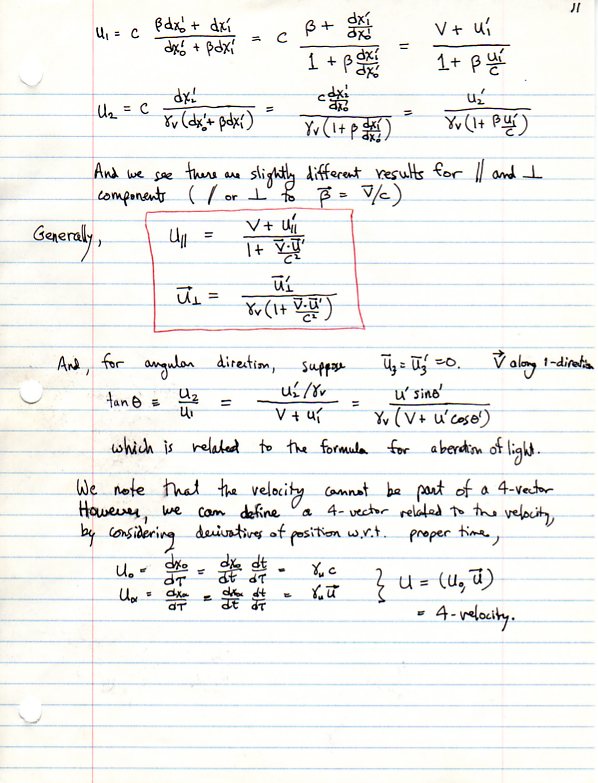 11
u₁ = c (βdx₀′ + dx₁′)/(dx₀′ + βdx₁′) = c (β + dx₁′/dx₀′)/(1 + β dx₁′/dx₀′) = (V + u₁′)/(1 + β u₁′/c)
u₂ = c dx₂′/(γᵥ(dx₀′ + βdx₁′)) = (c dx₂′/dx₀′)/(γᵥ(1 + β dx₁′/dx₀′)) = u₂′/(γᵥ(1 + β u₁′/c))
And we see there are slightly different results for // and ⊥
components ( // or ⊥ to β⃗ = V⃗/c)
Generally, u∥ = (V + u∥′)/(1 + V⃗·u⃗′/c²)
u⃗⊥ = u⃗⊥′/(γᵥ(1 + V⃗·u⃗′/c²))
And, for angular direction, suppose u⃗₃ = u⃗₃′ = 0. V⃗ along 1-direction
tan θ ≡ u₂/u₁ = (u₂′/γᵥ)/(V + u₁′) = u′ sinθ′/(γᵥ(V + u′ cosθ′))
which is related to the formula for aberation of light.
We note that the velocity cannot be part of a 4-vector
However, we can define a 4-vector related to the velocity,
by considering derivatives of position w.r.t. proper time,
U₀ = dx₀/dτ = dx₀/dt dt/dτ = γᵤ c } U = (U₀, U⃗)
Uα = dxα/dτ = dxα/dt dt/dτ = γᵤ u⃗ = 4-velocity.